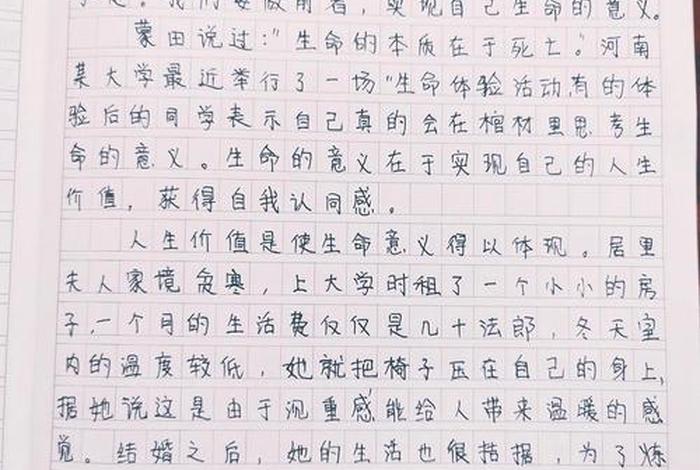 我们要做勇者，实现自己生命的意义。
蒙田说过："生命的本质在于死亡。"河南
某大学最近举行了一场"生命体验活动，有的体
验后的同学表示自己真的会在棺材里思考生
命的意义。生命的意义在于实现自己的人生
价值，获得自我认同感。
人生价值是使生命意义得以体现。居里
夫人家境贫寒，上大学时租了一个小小的房
子，一个月的生活费仅仅是几十法郎，冬天室
内的温度较低，她就把椅子压在自己的身上，
据她说这是由于沉重感能给人带来温暖的感
觉。结婚之后，她的生活也很拮据，为了炼